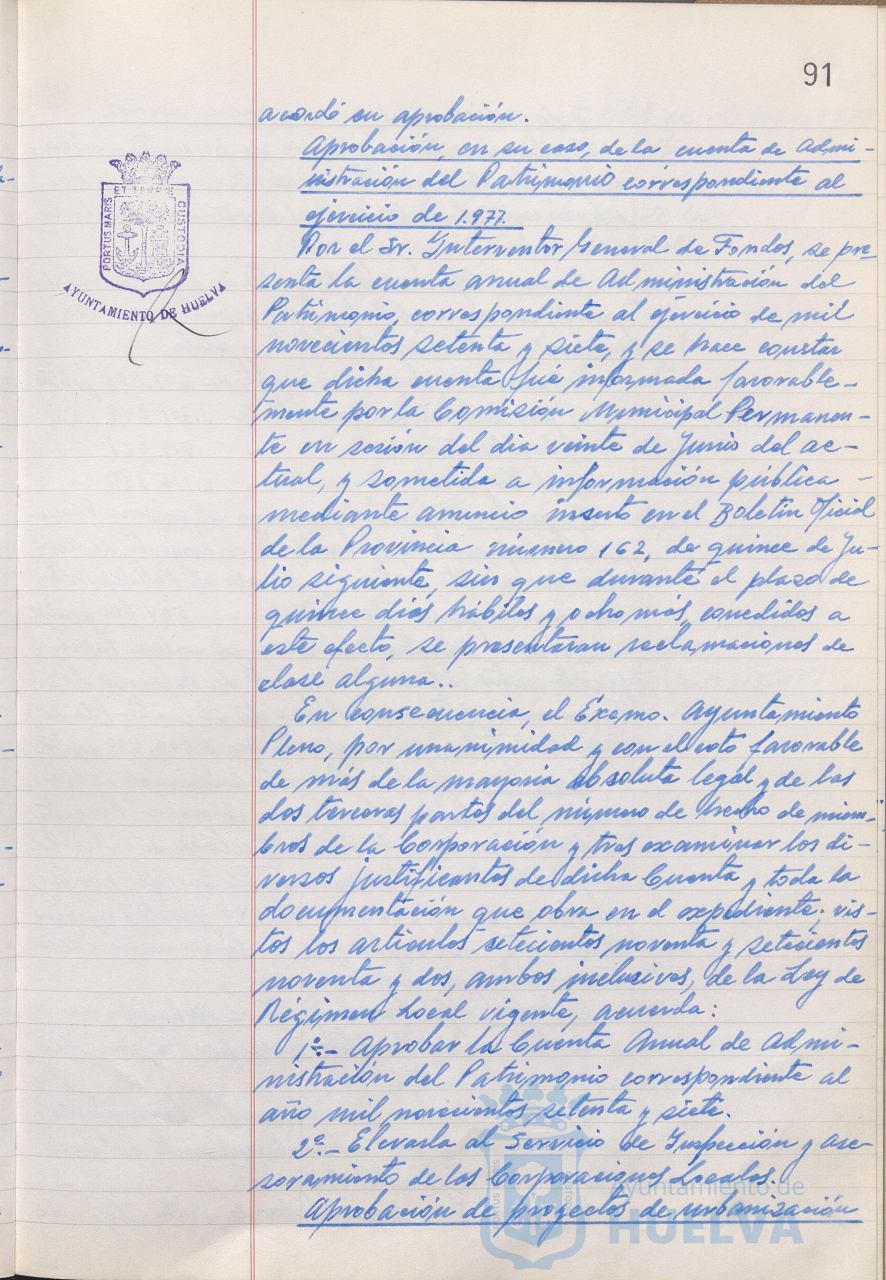 91
acordó su aprobación.
Aprobación, en su caso, de la cuenta de Admi-
nistración del Patrimonio correspondiente al
ejercicio de 1.977.
Por el Sr. Interventor General de Fondos, se pre-
senta la cuenta anual de Administración del
Patrimonio, correspondiente al ejercicio de mil
novecientos setenta y siete, y se hace constar
que dicha cuenta fué informada favorable-
mente por la Comisión Municipal Permanen-
te en sesión del dia veinte de Junio del ac-
tual, y sometida a información pública -
mediante anuncio inserto en el Boletín Oficial
de la Provincia número 162, de quince de Ju-
lio siguiente, sin que durante el plazo de
quince dias hábiles y ocho más, concedidos a
este efecto, se presentaran reclamaciones de
clase alguna..
En consecuencia, el Excmo. Ayuntamiento
Pleno, por unanimidad y con el voto favorable
de más de la mayoria absoluta legal y de las
dos terceras partes del número de hecho de miem-
bros de la Corporación y tras examinar los di-
versos justificantes de dicha Cuenta y toda la
documentación que obra en el expediente; vis-
tos los artículos setecientos noventa y setecientos
noventa y dos, ambos inclusives, de la Ley de
Régimen Local vigente, acuerda:
1º.- Aprobar la Cuenta Anual de Admi-
nistración del Patrimonio correspondiente al
año mil novecientos setenta y siete.
2º.- Elevarla al Servicio de Inspección y ase-
soramiento de las Corporaciones Locales.
Aprobación de proyectos de urbanización
PORTUS MARIS ET TERRE CUSTODIA
AYUNTAMIENTO DE HUELVA
Ayuntamiento de
HUELVA